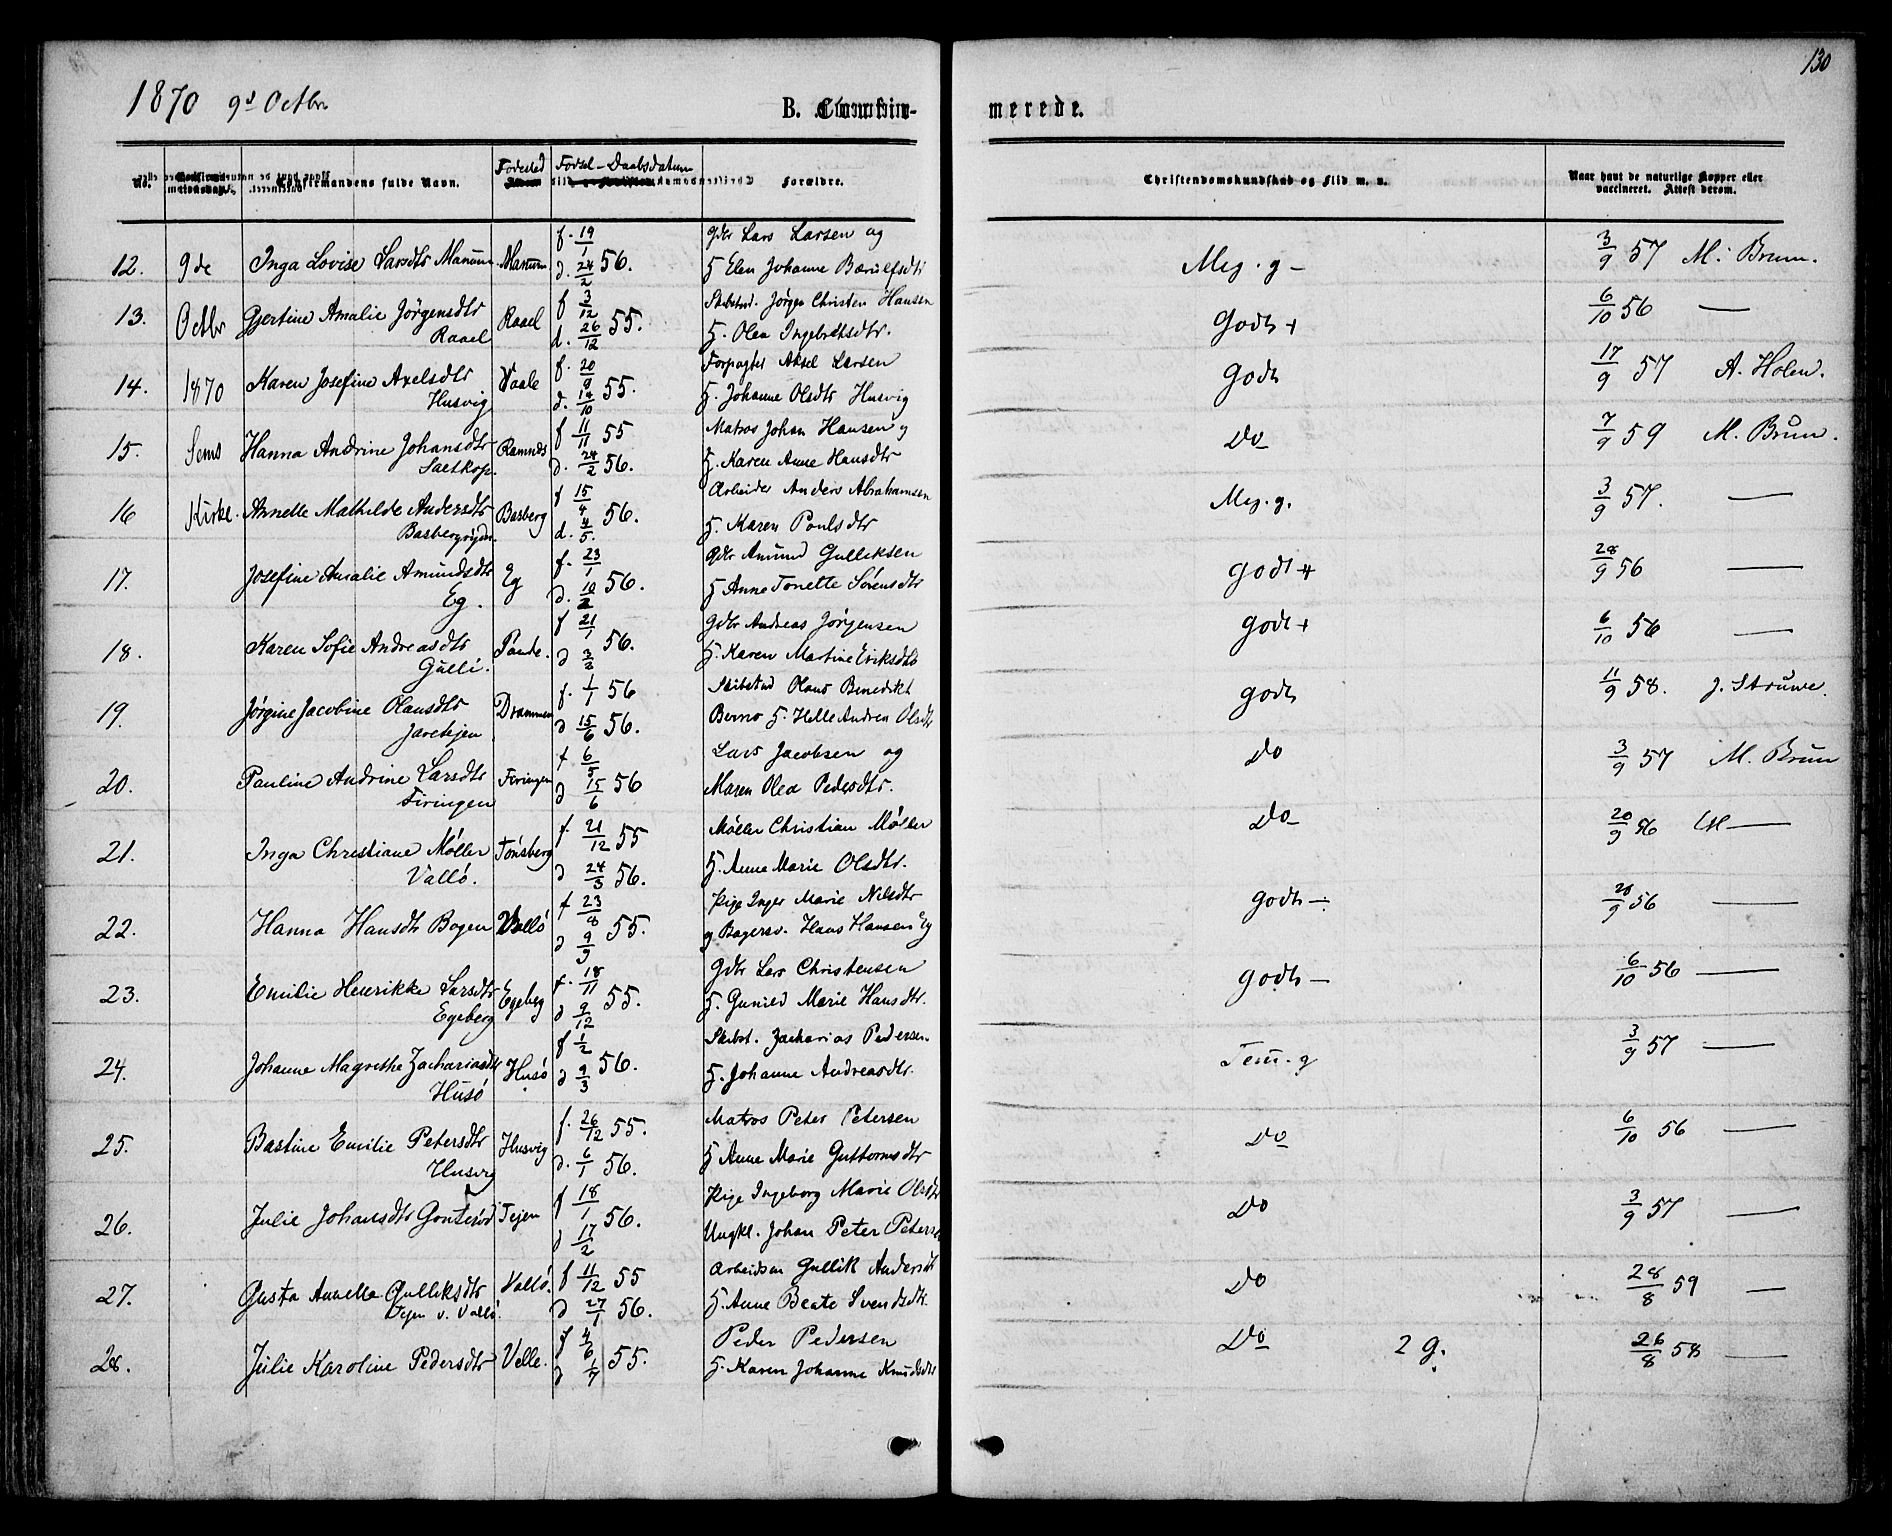 130
1870 9d Octbr
B. Confir-
merede.
No.
Confirmandens fulde Navn.
Fødested
Fødsel - Daabsdatum
Forældre.
Christendomskundskab og Flid m. v.
Naar havt de naturlige Kopper eller
vaccineret. Attest derom.
12. 9de Inga Lovise Larsdtr Manum Manum f. 19/1 d. 24/2 56. Gdbr Lars Larsen og
Elen Johanne Meg. g - 3/9 57 M. Brun.
13. Octbr Gjertine Amalie Jörgensdtr
Raael Raael f 3/12 d. 26/12 55. Jörgen Christen Hansen
H. Olea Ingebretsdtr. Godt + 6/10 56 —
14. 1870 Karen Josefine Axelsdtr
Husvig Vaale f. 20/9 d. 14/10 55. Forpagter Aksel Larsen
H. Johanne Olsdtr Husvig godt 17/9 57 A. Holm.
15. Sems Hanna Andrine Johansdtr
Saltkop. Ramnes f 11/11 55 d. 24/2 56. Matros Johan Hansen
H. Karen Anne Hansdtr Do 7/9 59 M. Brun.
16 Kirke. Annette Mathilde Andersdtr
Basberg f 15/4 d. 4/5. 56. Arbeider Anders Abrahamsen
H. Karen Poulsdtr Meg. g. 3/9 57. —
17. Josefine Amalie Amundsdtr
Eg. Eg f. 23/1 d. 10/2 56. Gdbr Amund Gulliksen
H Anne Tonette Sörensdtr godt + 28/9 56 —
18. Karen Sofie Andreasdtr
Gulli. f 21/1 d 3/2 56. Gdbr Andreas Jörgensen
H. Karen Martine Eriksdtr godt + 6/10 56 —
19. Jörgine Jacobine Olausdtr
Jaretejen Drammen f. 1/1 56 d 15/6 56. Olaus Benedikt
H. Helle Andrea Olsdtr godt 11/9 58. J. Struwe.
20. Pauline Andrine Larsdtr
Firingen Firingen f 6/5 d 15/6 56 Lars Jacobsen og
Maren Olea Pedersdtr. Do 3/9 57 M. Brun
21. Inga Christiane Möller
Vallö. Tønsberg f. 21/12 55 d 24/3 56. Møller Christian Møller
H. Anne Marie Olsdtr. Do 20/9 56 M —
22. Hanna Hansdtr Bogen Vallö f 23/8 d 9/9 55. Pige Inger Marie Nilsdtr
Hans Hansen Eg godt - 28/9 56 —
23. Emilie Henrikke Larsdtr
Egeberg Egeberg f. 18/11 d 9/12 55. Gdbr Lars Christensen
H. Gunild Marie Hansdtr. godt - 6/10 56 —
24. Johanne Magrethe Zachariasdtr
Husö Husö f 1/2 d 9/3 56. Skibst. Zacharias Pedersen.
H. Johanne Andreasdtr. Tem. g 3/9 57 —
25. Bastine Emilie Petersdtr
Husvig Husvig f. 26/12 55. d. 6/1 56. Matros Peter Petersen
H Anne Marie Guttormsdtr Do 6/10 56 —
26. Julie Johansdtr Gonterød Tejen f 18/1 d 17/2 56. Pige Ingeborg Marie Olsdtr
Ungkl. Johan Peter Petersen Do 3/9 57 —
27. Gusta Annette Gulliksdtr
Tejen v. Vallö. Vallö. f 11/12 55 d 27/1 56. Gullik Andersen
H. Anne Beate Svendsdtr. Do 28/8 59 —
28. Julie Karoline Pedersdtr Velle. f 4/6 d 1/7 55. Peder Pedersen
H. Karen Johanne Knudsdtr Do 2 g. 26/8 58 —